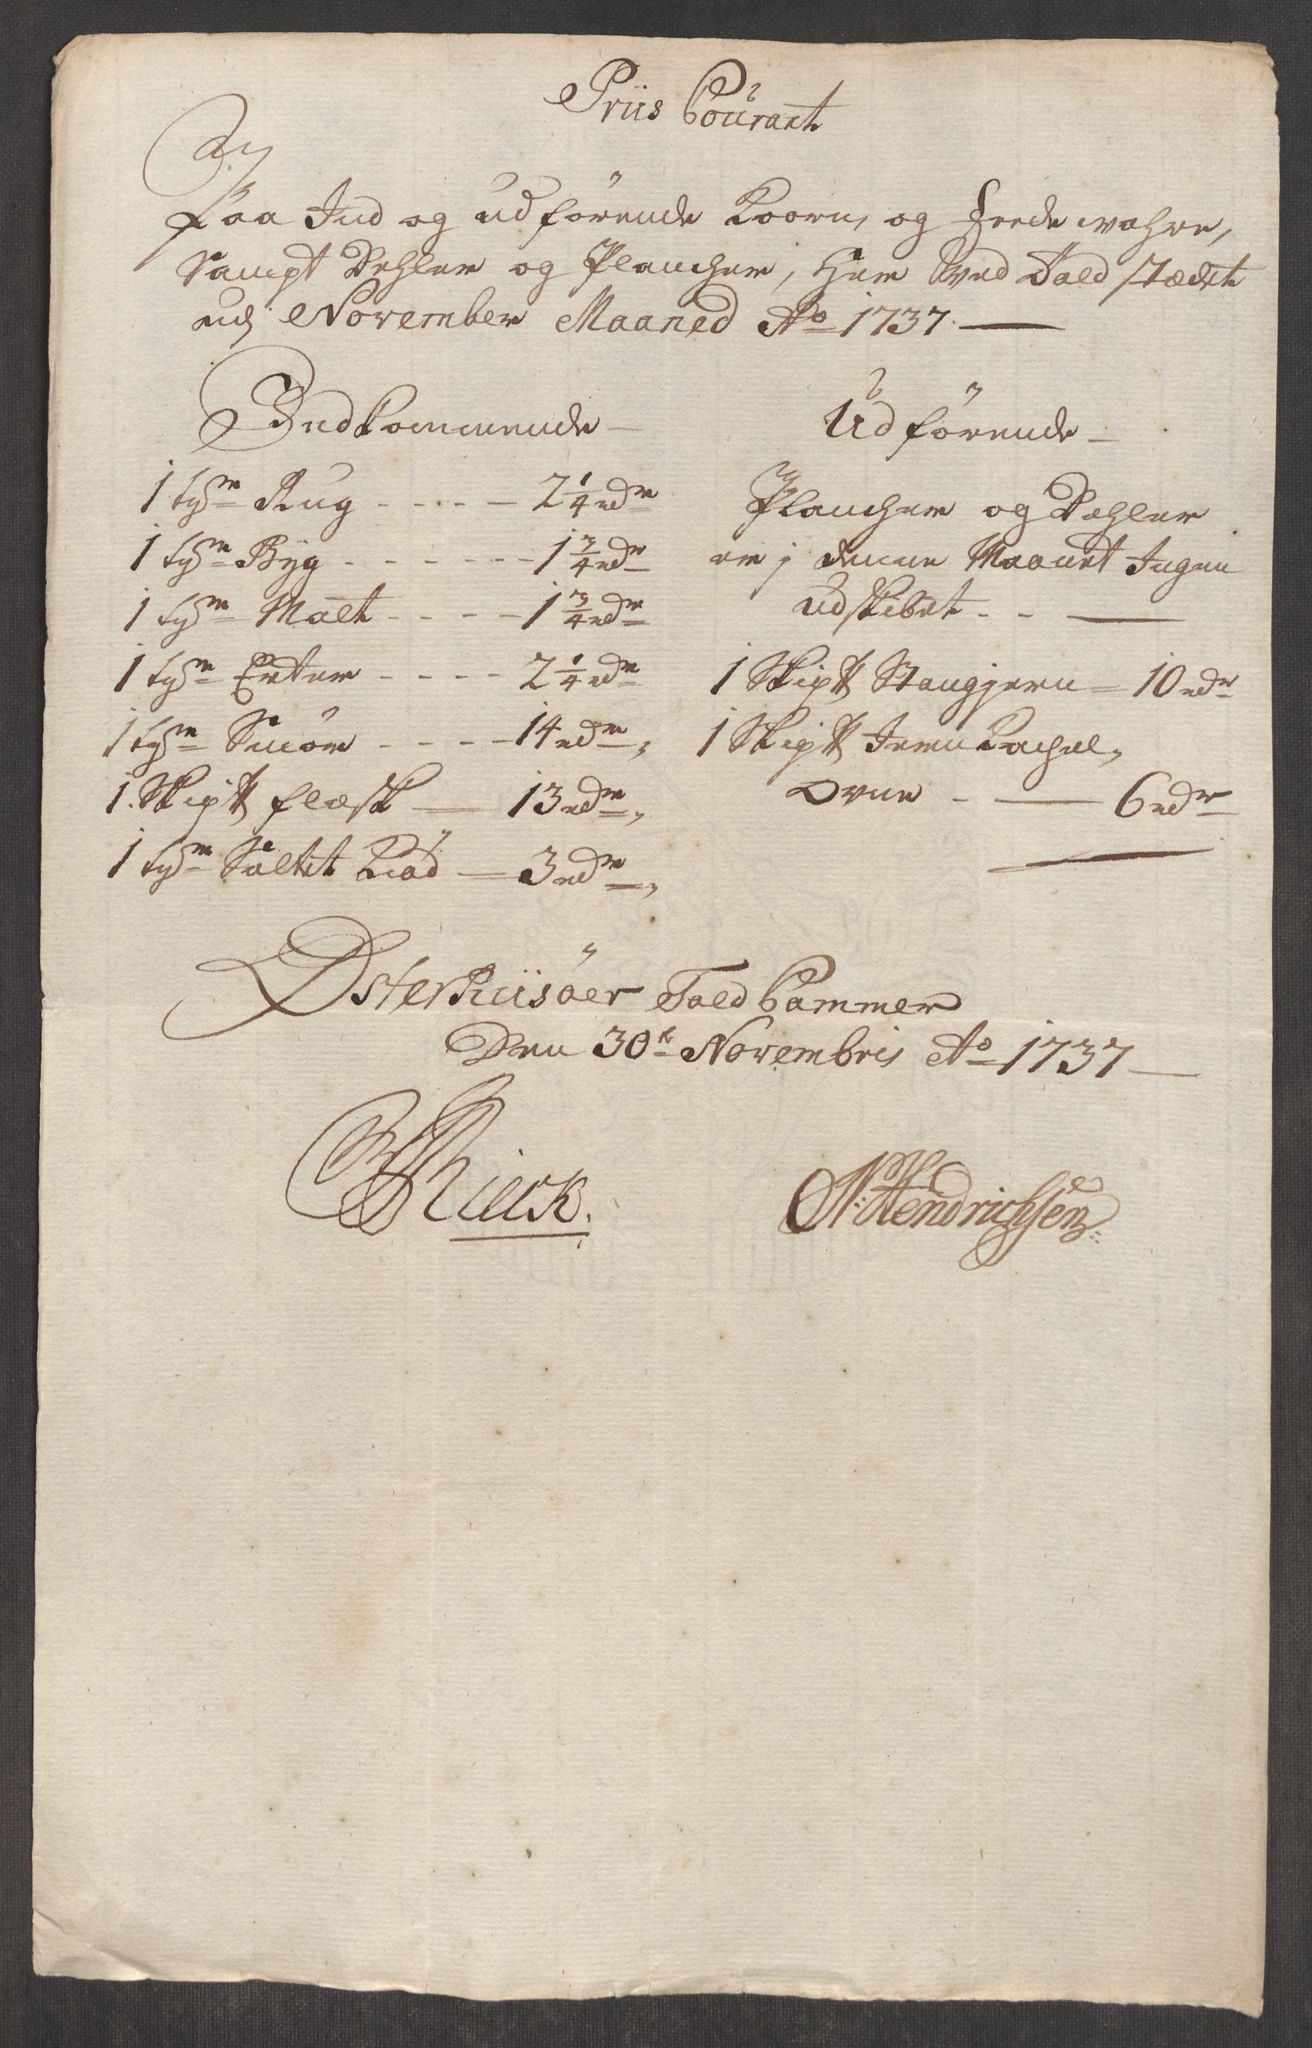 Priis Courant
Paa Ind og udförende Koorn, og fede wahre,
Sampt Dehler og Plancker, Her Wed Told stædet
udj November Maaned Ao 1737
Indkommende
1 týnr Rug - - - - 2 1/4 rdr
1 týnr Býg - - - - - - 1 3/4 rdr
1 týnr Malt - - - - - 1 3/4 rdr
1 týnr Erter - - - - 2 1/4 rdr
1 týnr Smör - - - - 14 rdr,
1 Skip℔ flæsk — 13 rdr,
1 týnr Saltet Kiöd — 3 rdr,
Udförende
Plancker og Dehler
er j denne Maanet Ingen
udskibet - -
1 Skip℔ Stangjern — 10 rdr
1 Skip℔ Jern Kachel,
Ovne - — 6 rdr
Österriisöer Told Cammer
Den 30te Novembris Ao 1737
N: Hendrichsen